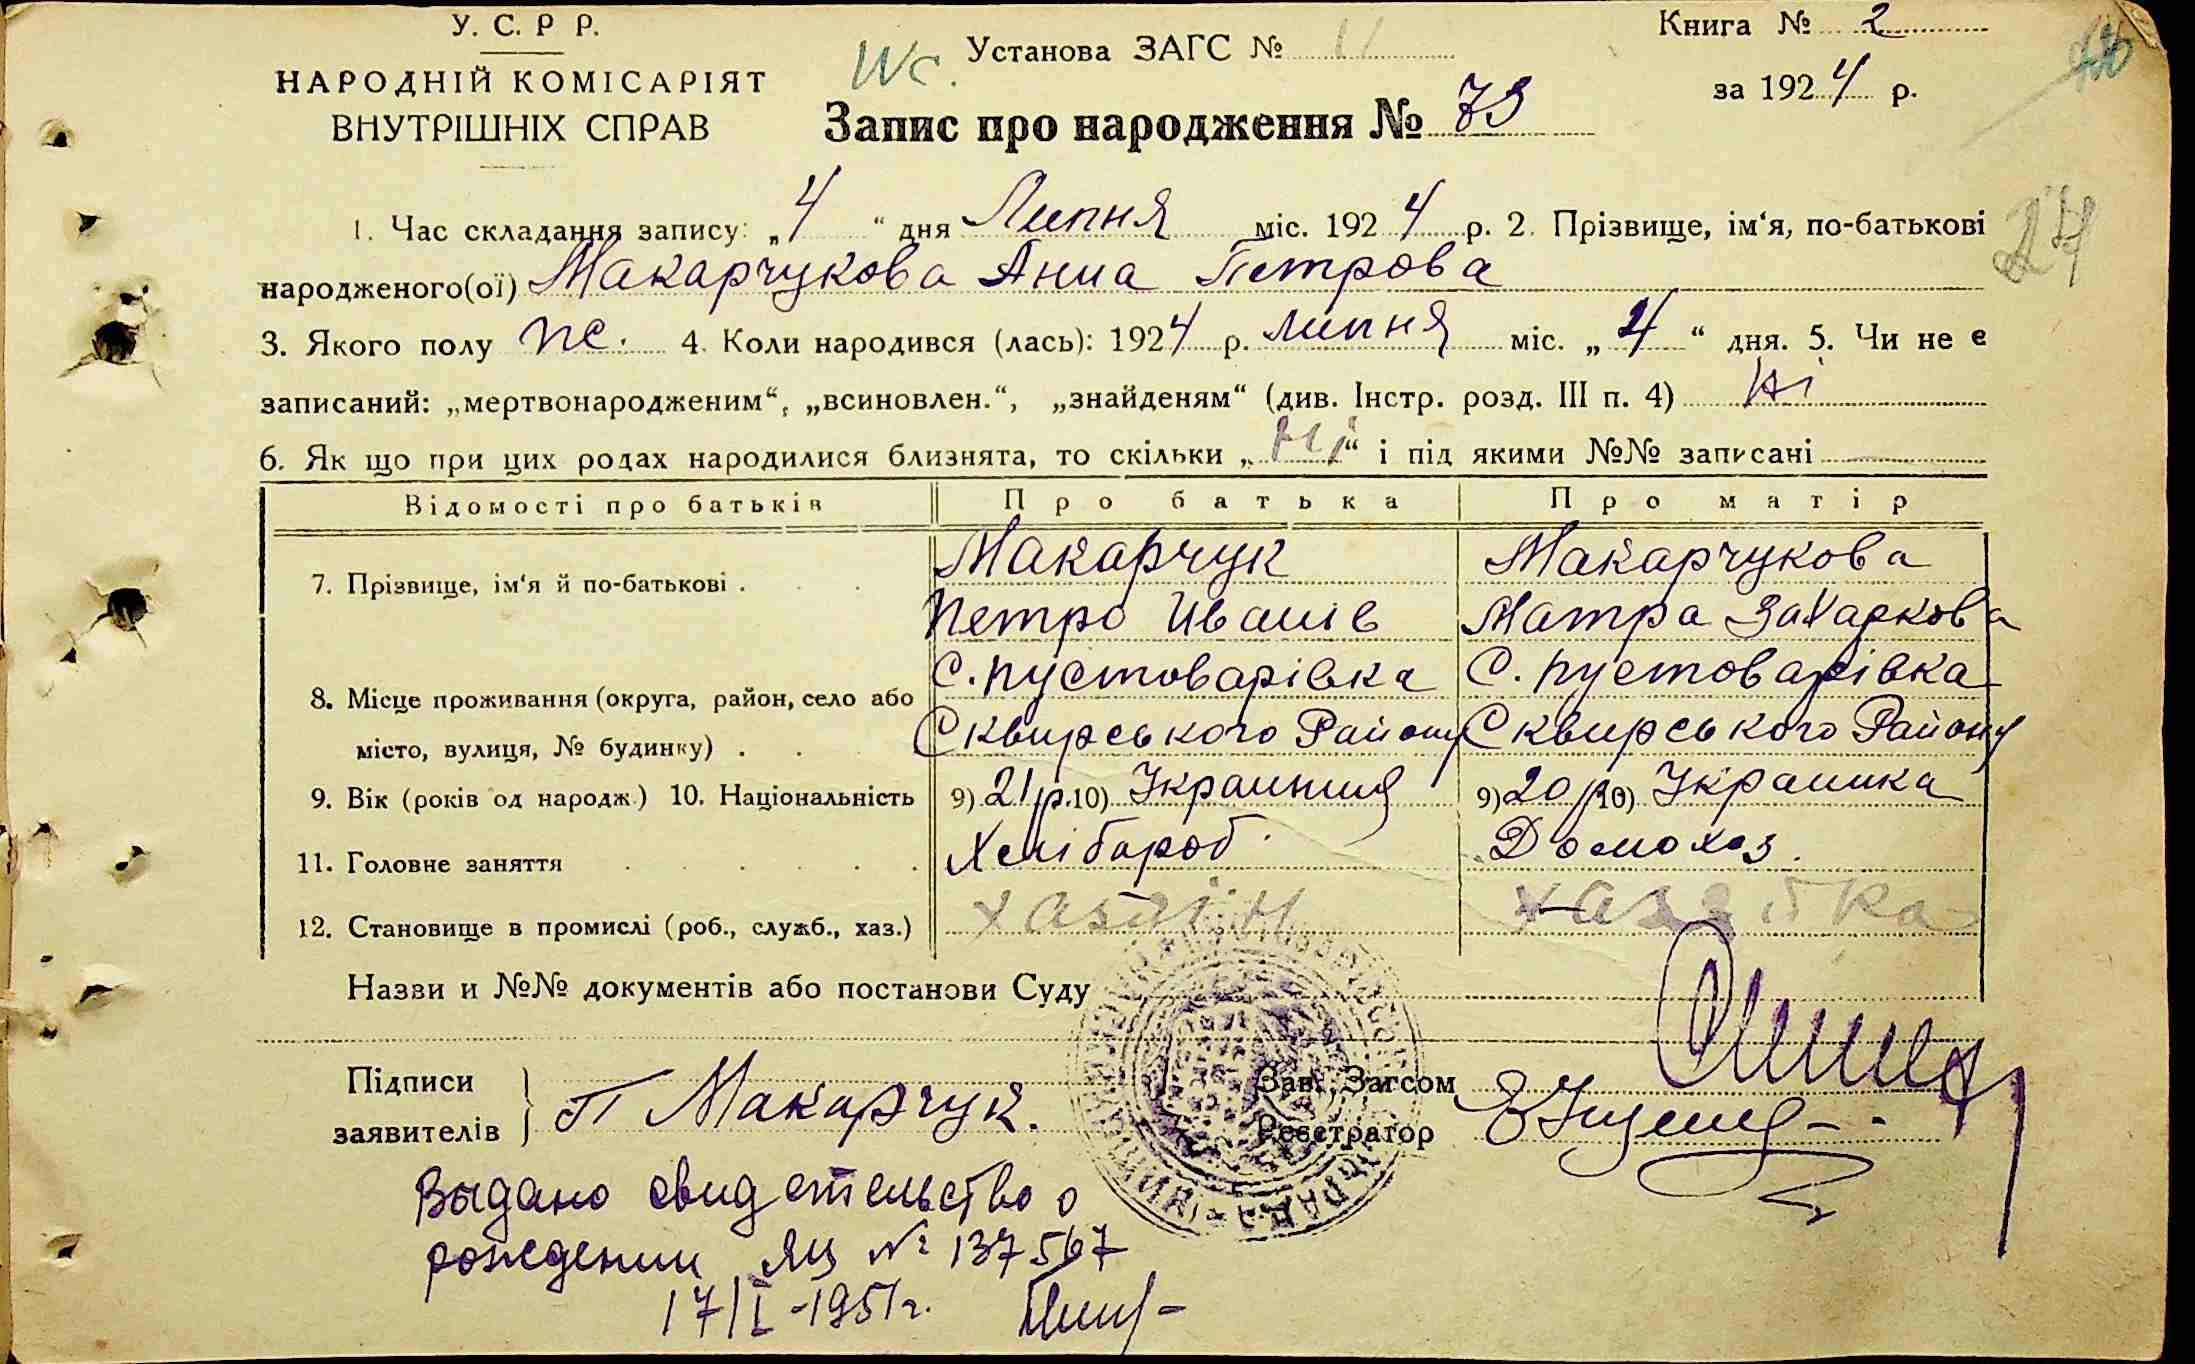 У. С. Р Р.
НАРОДНІЙ КОМІСАРІЯТ
ВНУТРІШНІХ СПРАВ
Установа ЗАГС № 11
Книга № 2
за 1924 р.
Запис про народження № 73
27
1. Час складання запису: „4“ дня Липня міс. 1924 р. 2. Прізвище, ім‘я, по-батькові
народженого(ої) Макарчукова Анна Петрова
3. Якого полу 4. Коли народився (лась): 1924 р. липня міс. „4“ дня. 5. Чи не є
записаний: „мертвонародженим“, „всиновлен.“, „знайденям“ (див. Інстр. розд. III п. 4) Ні
6. Як що при цих родах народилися близнята, то скільки „Ні“ і під якими №№ записані
Відомості про батьків Про батька Про матір
7. Прізвище, ім‘я й по-батькові . Макарчук Макарчукова
Петро Иванів Матра Захаркова
8. Місце проживання (округа, район, село або С. Пустоварівка С. Пустоварівка
місто, вулиця, № будинку) . Сквирського Району Сквирського Району
9. Вік (років од народж.) 10. Національність 9) 21 р. 10) Украинця 9) 20 р. 10) Украинка
11. Головне заняття Хлібороб Домохаз.
12. Становище в промислі (роб., служб., хаз.) хазяїн хазяйка
Назви и №№ документів або постанови Суду
Підписи
заявителів П Макарчук.
Зав. Загсом
Реєстратор
Выдано свидетельство о
рождении ЯЦ № 137567
17/I-1951г.